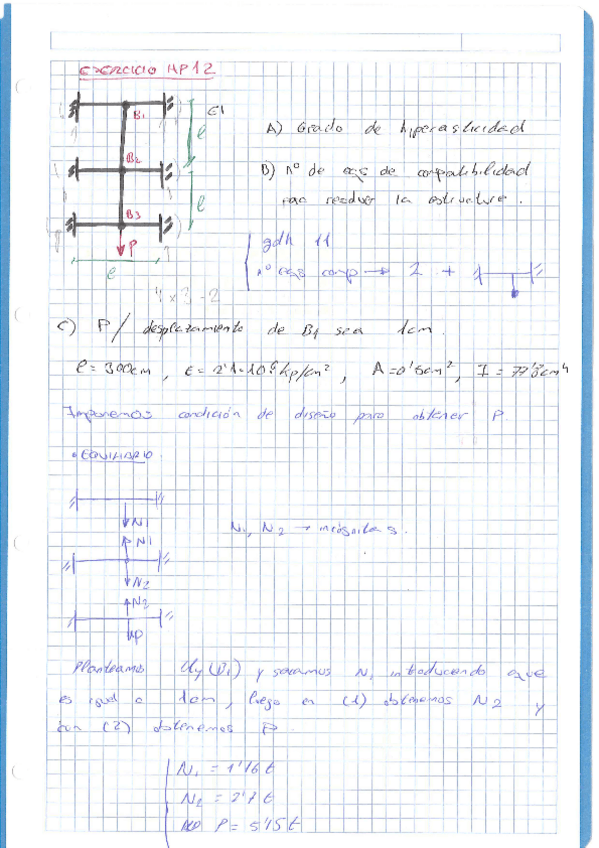 EXERCICIO HP12
B1
EI
l
B2
l
B3
P
l
A) Grado de hiperasticidad
B) nº de ecs de compatibilidad
para resolver la estructura.
gdh 11
nº ecs comp → 2 +
4 x 3 - 2
C) P / desplazamiento de B1 sea 1cm.
l = 300cm, E = 2'1·10⁶ kp/cm², A = 0'5cm², I = 77'8cm⁴
Imponemos condición de diseño para obtener P.
• EQUILIBRIO.
N1
N1
N2
N2
P
N1, N2 → incógnitas.
Planteamos Uy(B1) y sacamos N1 introduciendo que
es igual a 1cm, luego en (1) obtenemos N2 y
con (2) obtenemos P.
N1 = 1'16 t
N2 = 2'7 t
P = 5'15 t